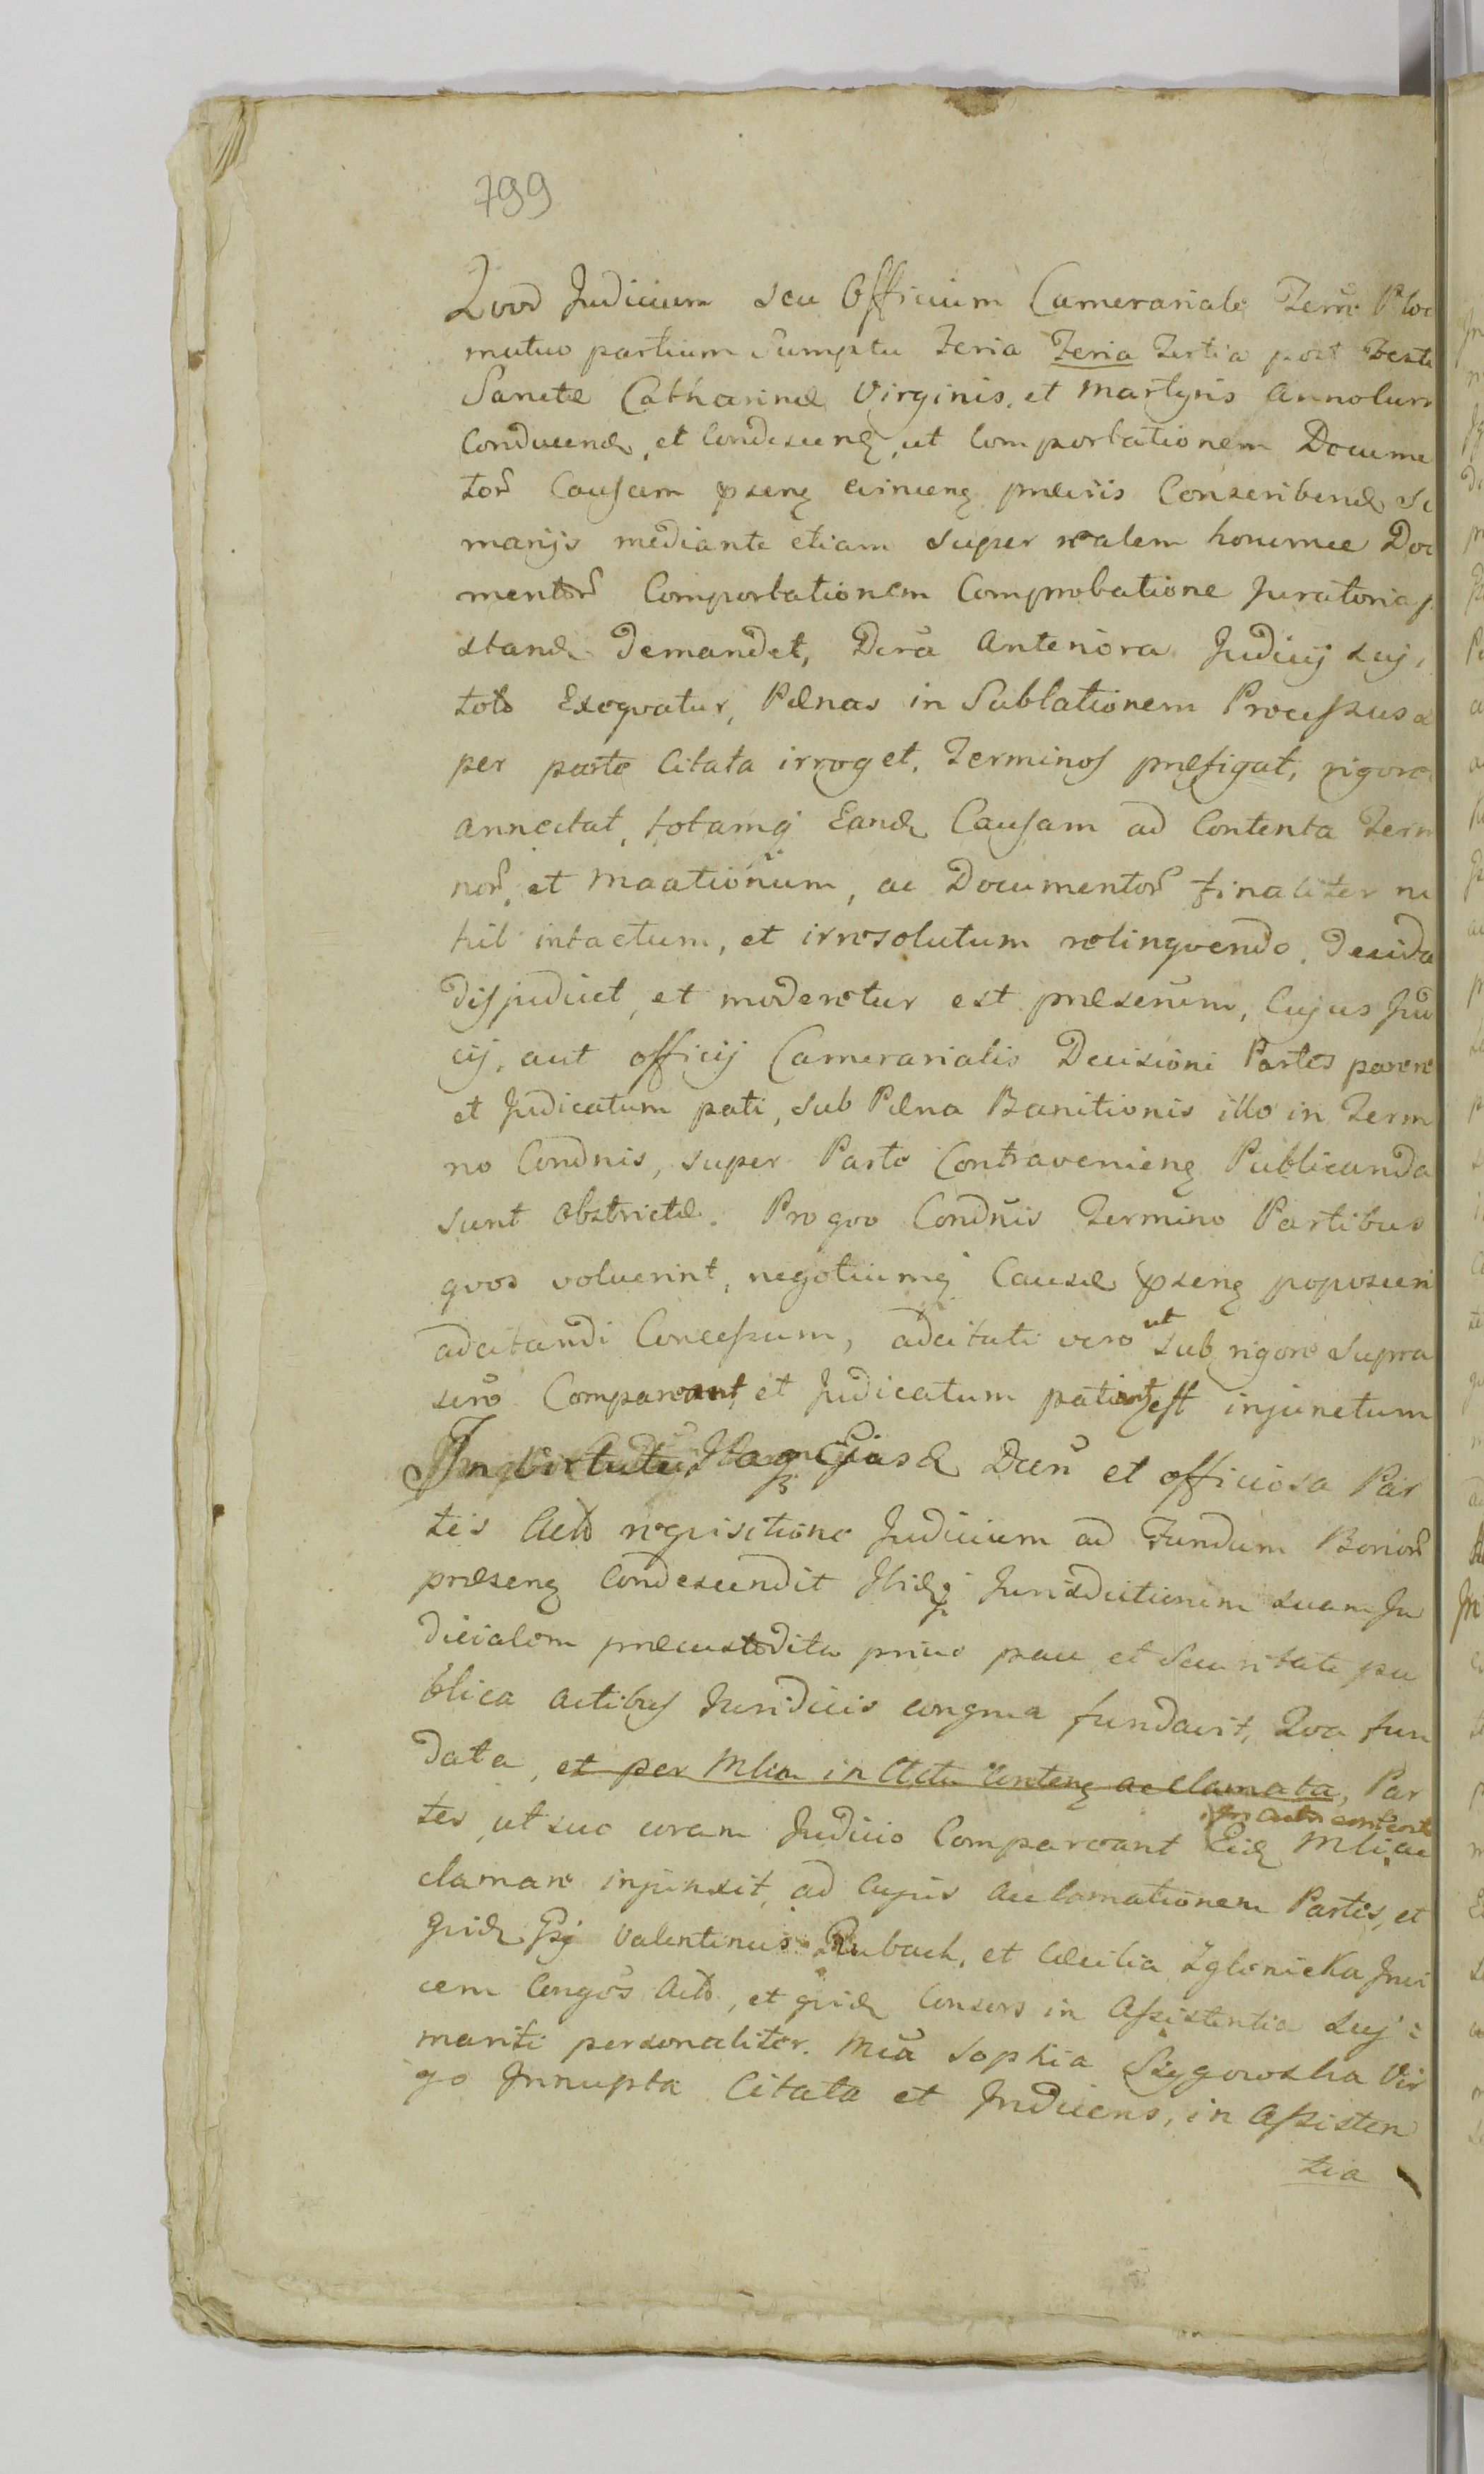 799
Qvod Judicium seu Officium Camerariale Terrae Ploc
mutuo partium Sumptu Feria Feria Tertia post Festu
Sanctae Catharinae Virginis, et Martyris Anno
Conducend, et Condescen, ut Comportationem Docume
tor Causam evincen praeviis Conscribend
marijs mediante etiam super realem Doc
mentor Comportationem Comprobatione Juratoria
stand demandet, Dcra Anteriora Judicij sui
toto Exeqvatur, Paenas in Sublationem Processus
per parte Citata irroget, Terminos praefigat, rigore
annectat, totamq Eand Causam ad Contenta Term
nor, et Maationum, ac Documentor finaliter ni
hil intactum, et irresolutum relinqvendo, Decida
disjudicet, et moderetur est praesenum, Cujus Jud
cij, aut officij Camerarialis Decisioni Partes parere
et Judicatum pati, sub Paena Banitionis illo in Term
no Condnis, super Parte Contravenien Publicanda
sunt obstrictae. Pro qvo Condnis Termino Partibus
qvos voluerint, negotiumq Causae
adcitandi Concessum, adcitati vero ut sub rigore supra
scro Compareant, et Judicatum patiant est injunctum
In Virtute Itaq Ejusd Dcri et officiosa Par
tis Acto reqvisitione Judicium ad Fundum Bonor
praesen Condescendit Ibidq Jurisdictionem suam Ju
dicialem praecustodita prius pace et Securitate pu
blica actibus Juridicis congrua fundavit, Qva fun
data, et per Mlem in Actu Conten acclamata, Par
tes, ut suo coram Judicio Compareant Eid Mli in Actu content ac
clamare injunxit, ad Cujus acclamationem Partes, et
qvid Valentinus Rubach, et Caecilia Zglenicka Invi
cem Congos Acto, et qvid Consors in Assistentia suj
mariti personaliter. Mca Sophia Szygowska Vir
go Innupta Citata et Inducens, in Assisten
tia